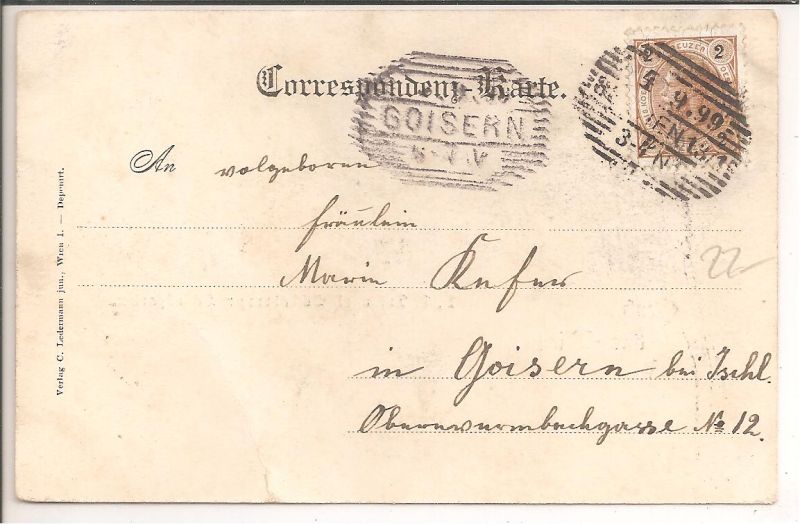 Correspondenz-Karte.
GOISERN
2 KREUZER 2
9.99
An Wolgeboren
Fräulein
Marie Kefer
in Goisern bei Ischl.
Oberwurmbachgasse No 12.
22-
Verlag C. Ledermann jun., Wien I. — Deponirt.